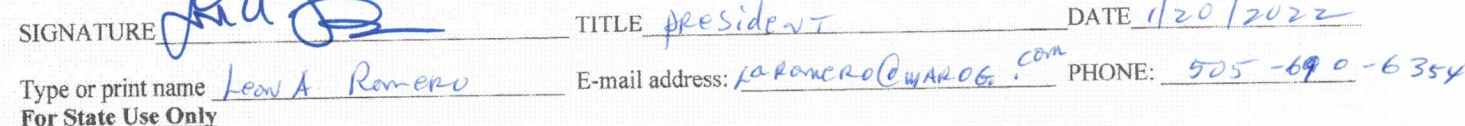 SIGNATURE TITLE President DATE 1/20/2022
Type or print name Leon A Romero E-mail address: laromero@warog.com PHONE: 505-690-6354
For State Use Only